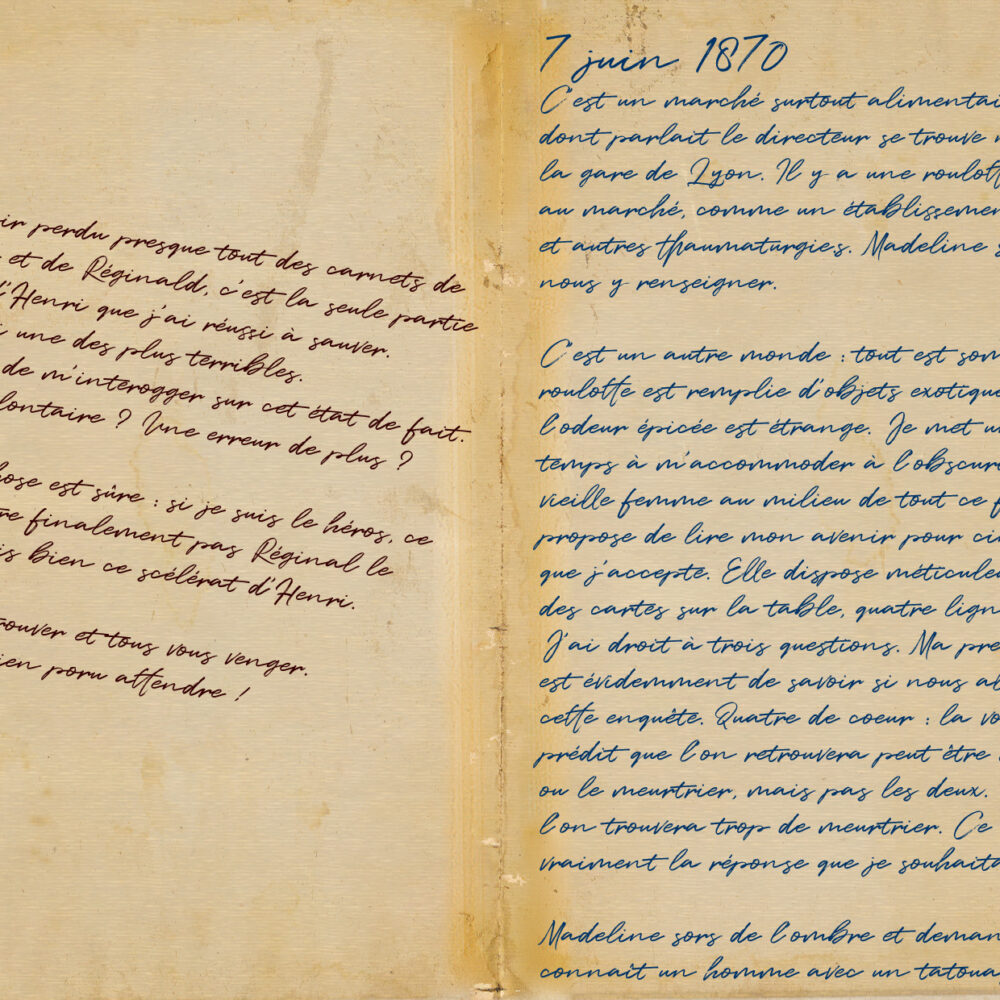 ir perdu presque tout des carnets de
et de Réginald, c'est la seule partie
d'Henri que j'ai réussi à sauver.
une des plus terribles.
de m'interogger sur cet état de fait.
lontaire ? Une erreur de plus ?
hose est sûre : si je suis le héros, ce
re finalement pas Réginal le
is bien ce scélérat d'Henri.
rouver et tous vous venger.
ien poru attendre !
7 juin 1870
C'est un marché surtout alimentai
dont parlait le directeur se trouve
la gare de Lyon. Il y a une roulott
au marché, comme un établissemen
et autres thaumaturgies. Madeline s
nous y renseigner.
C'est un autre monde : tout est som
roulotte est remplie d'objets exotique
l'odeur épicée est étrange. Je met u
temps à m'accommoder à l'obscuri
vieille femme au milieu de tout ce f
propose de lire mon avenir pour ci
que j'accepte. Elle dispose méticuleu
des cartes sur la table, quatre lign
J'ai droit à trois questions. Ma pre
est évidemment de savoir si nous al
cette enquête. Quatre de coeur : la vo
prédit que l'on retrouvera peut être
ou le meurtrier, mais pas les deux.
l'on trouvera trop de meurtrier. Ce
vraiment la réponse que je souhaita
Madeline sors de l'ombre et deman
connait un homme avec un tatoua